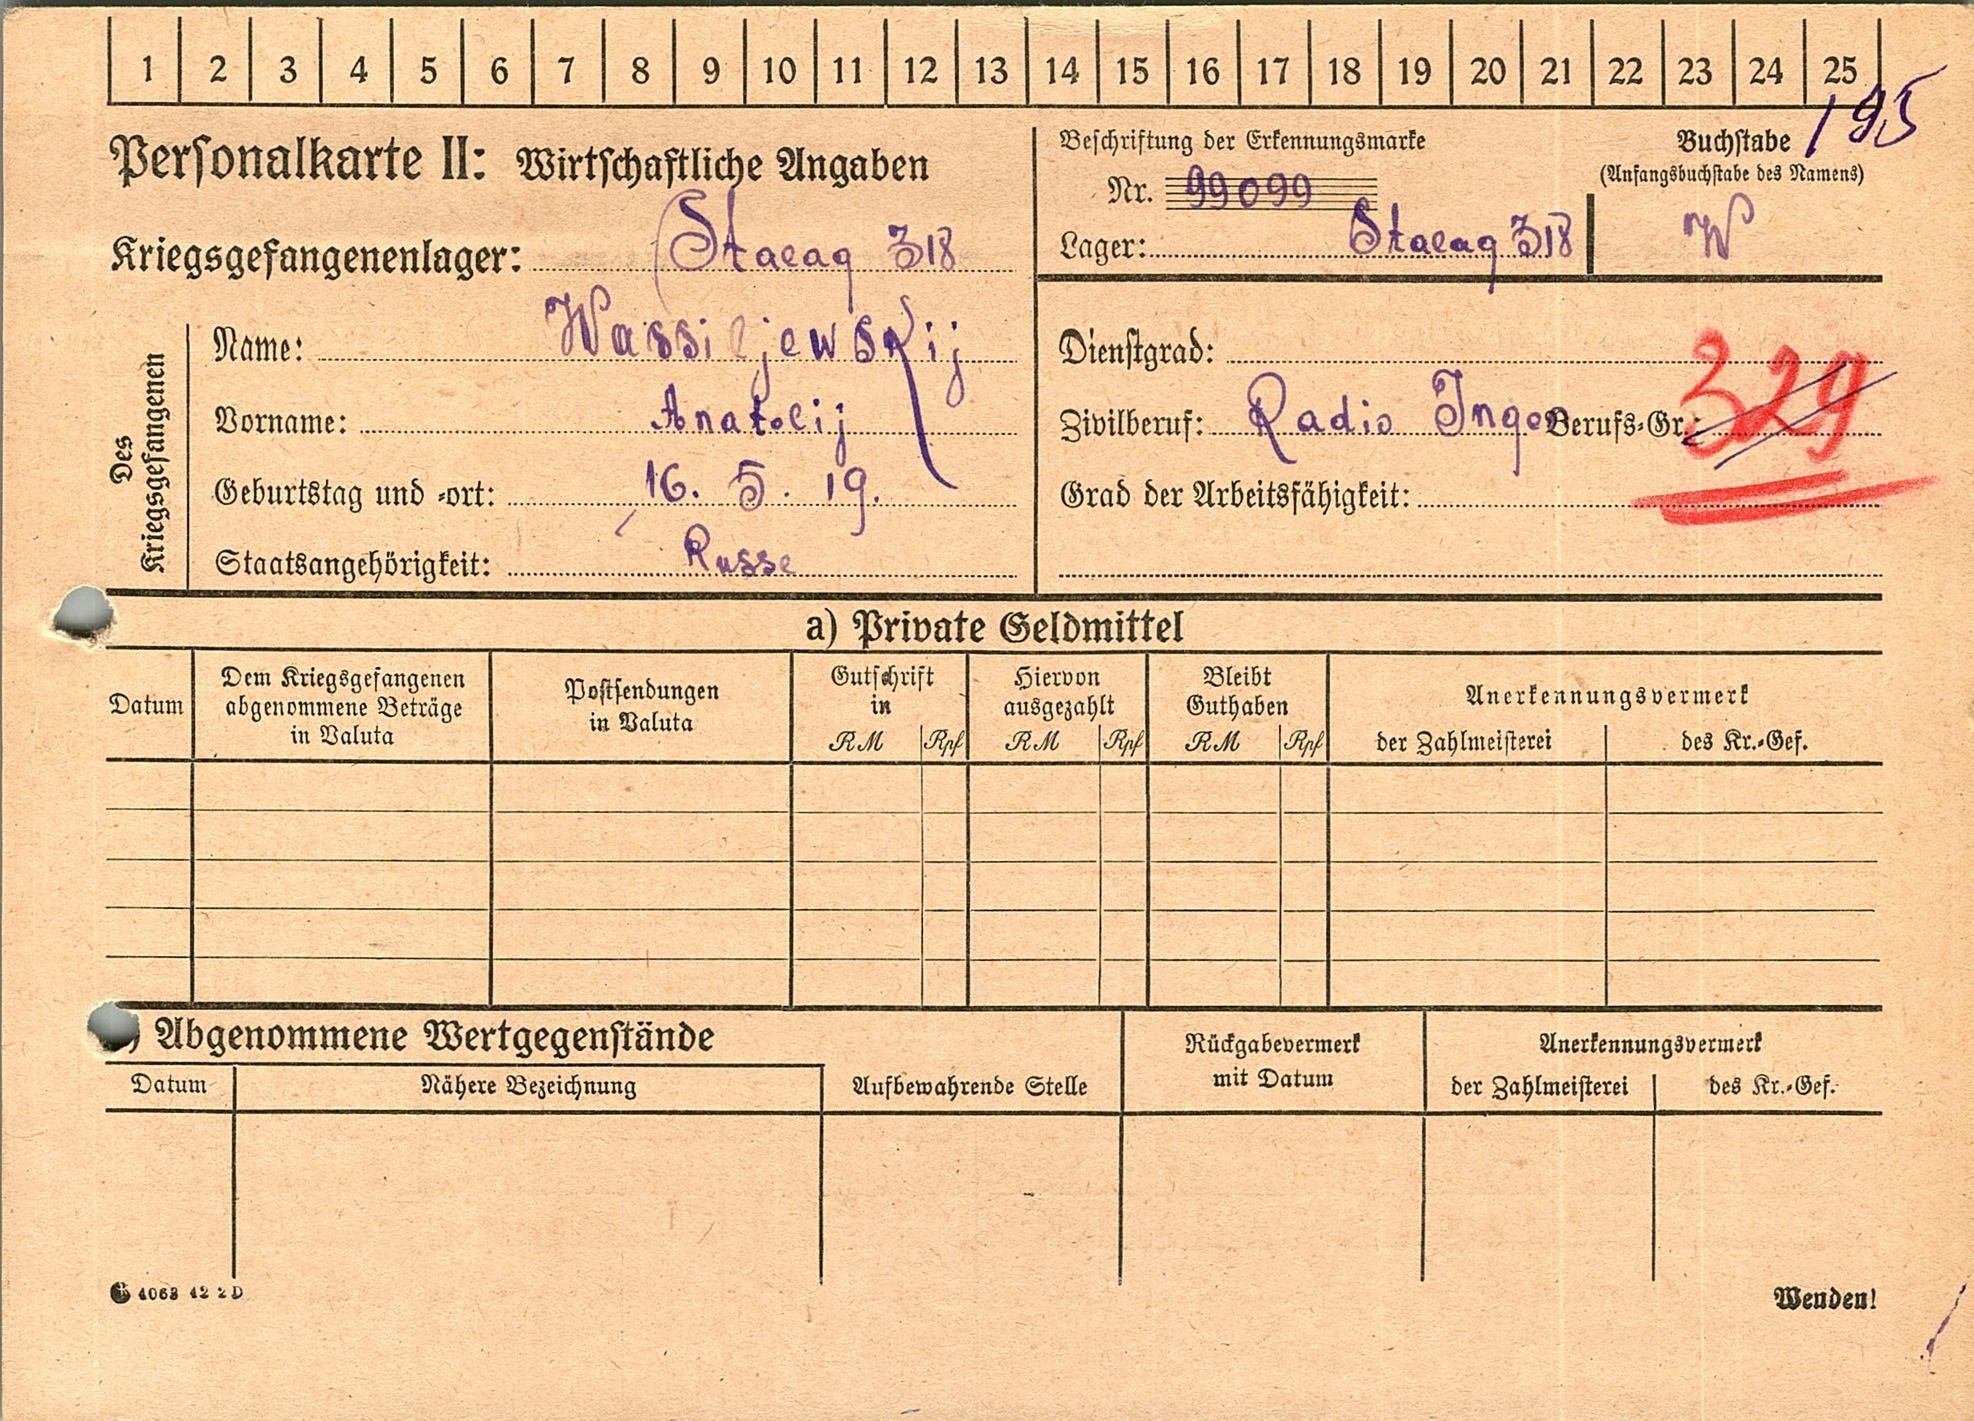 1 2 3 4 5 6 7 8 9 10 11 12 13 14 15 16 17 18 19 20 21 22 23 24 25
195
Personalkarte II: Wirtschaftliche Angaben
Beschriftung der Erkennungsmarke
Nr. 99099
Lager: Stalag 318
Buchstabe
(Anfangsbuchstabe des Namens)
W
Kriegsgefangenenlager: Stalag 318
Des Kriegsgefangenen
Name: Wassiljewskij
Vorname: Anatolij
Geburtstag und -ort: 16. 5. 19.
Staatsangehörigkeit: Russe
Dienstgrad:
Zivilberuf: Radio Ingen Berufs-Gr.: 329
Grad der Arbeitsfähigkeit:
a) Private Geldmittel
Datum
Dem Kriegsgefangenen
abgenommene Beträge
in Valuta
Postsendungen
in Valuta
Gutschrift
in
RM Rpf
Hiervon
ausgezahlt
RM Rpf
Bleibt
Guthaben
RM Rpf
Anerkennungsvermerk
der Zahlmeisterei
des Kr.-Gef.
) Abgenommene Wertgegenstände
Datum
Nähere Bezeichnung
Aufbewahrende Stelle
Rückgabevermerk
mit Datum
Anerkennungsvermerk
der Zahlmeisterei
des Kr.-Gef.
4063 42 2 D
Wenden!